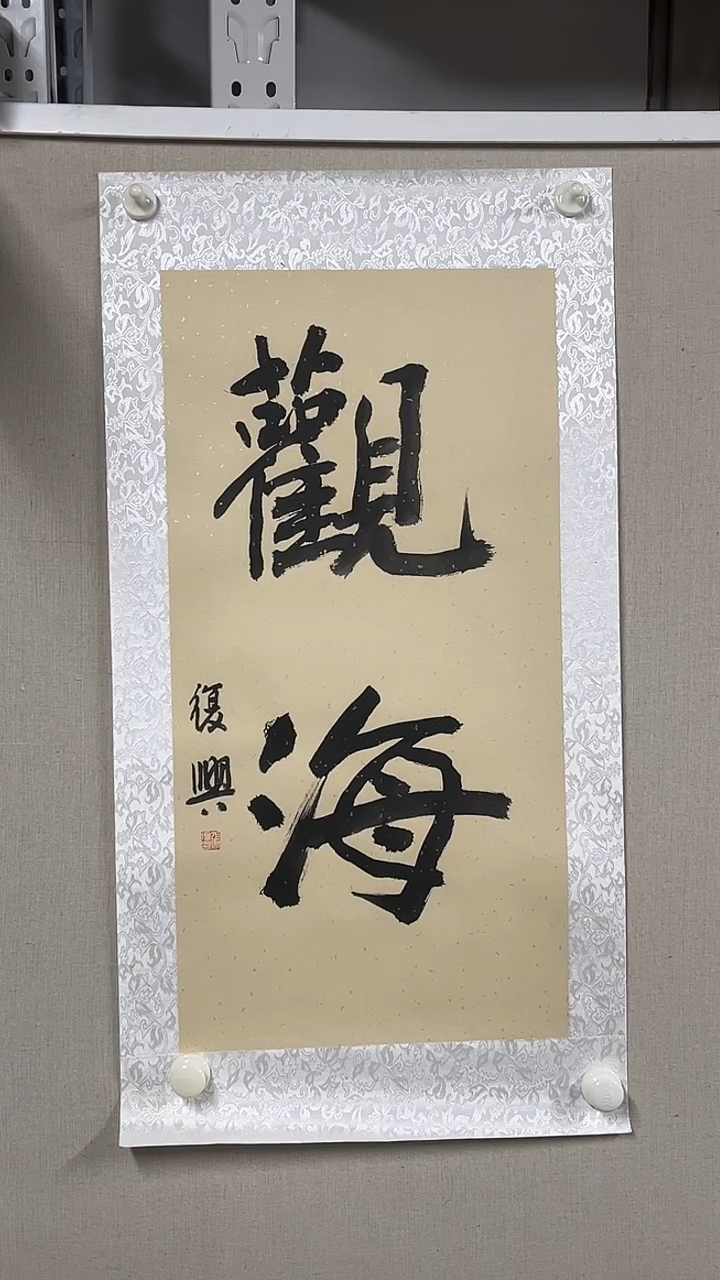 觀海
復興